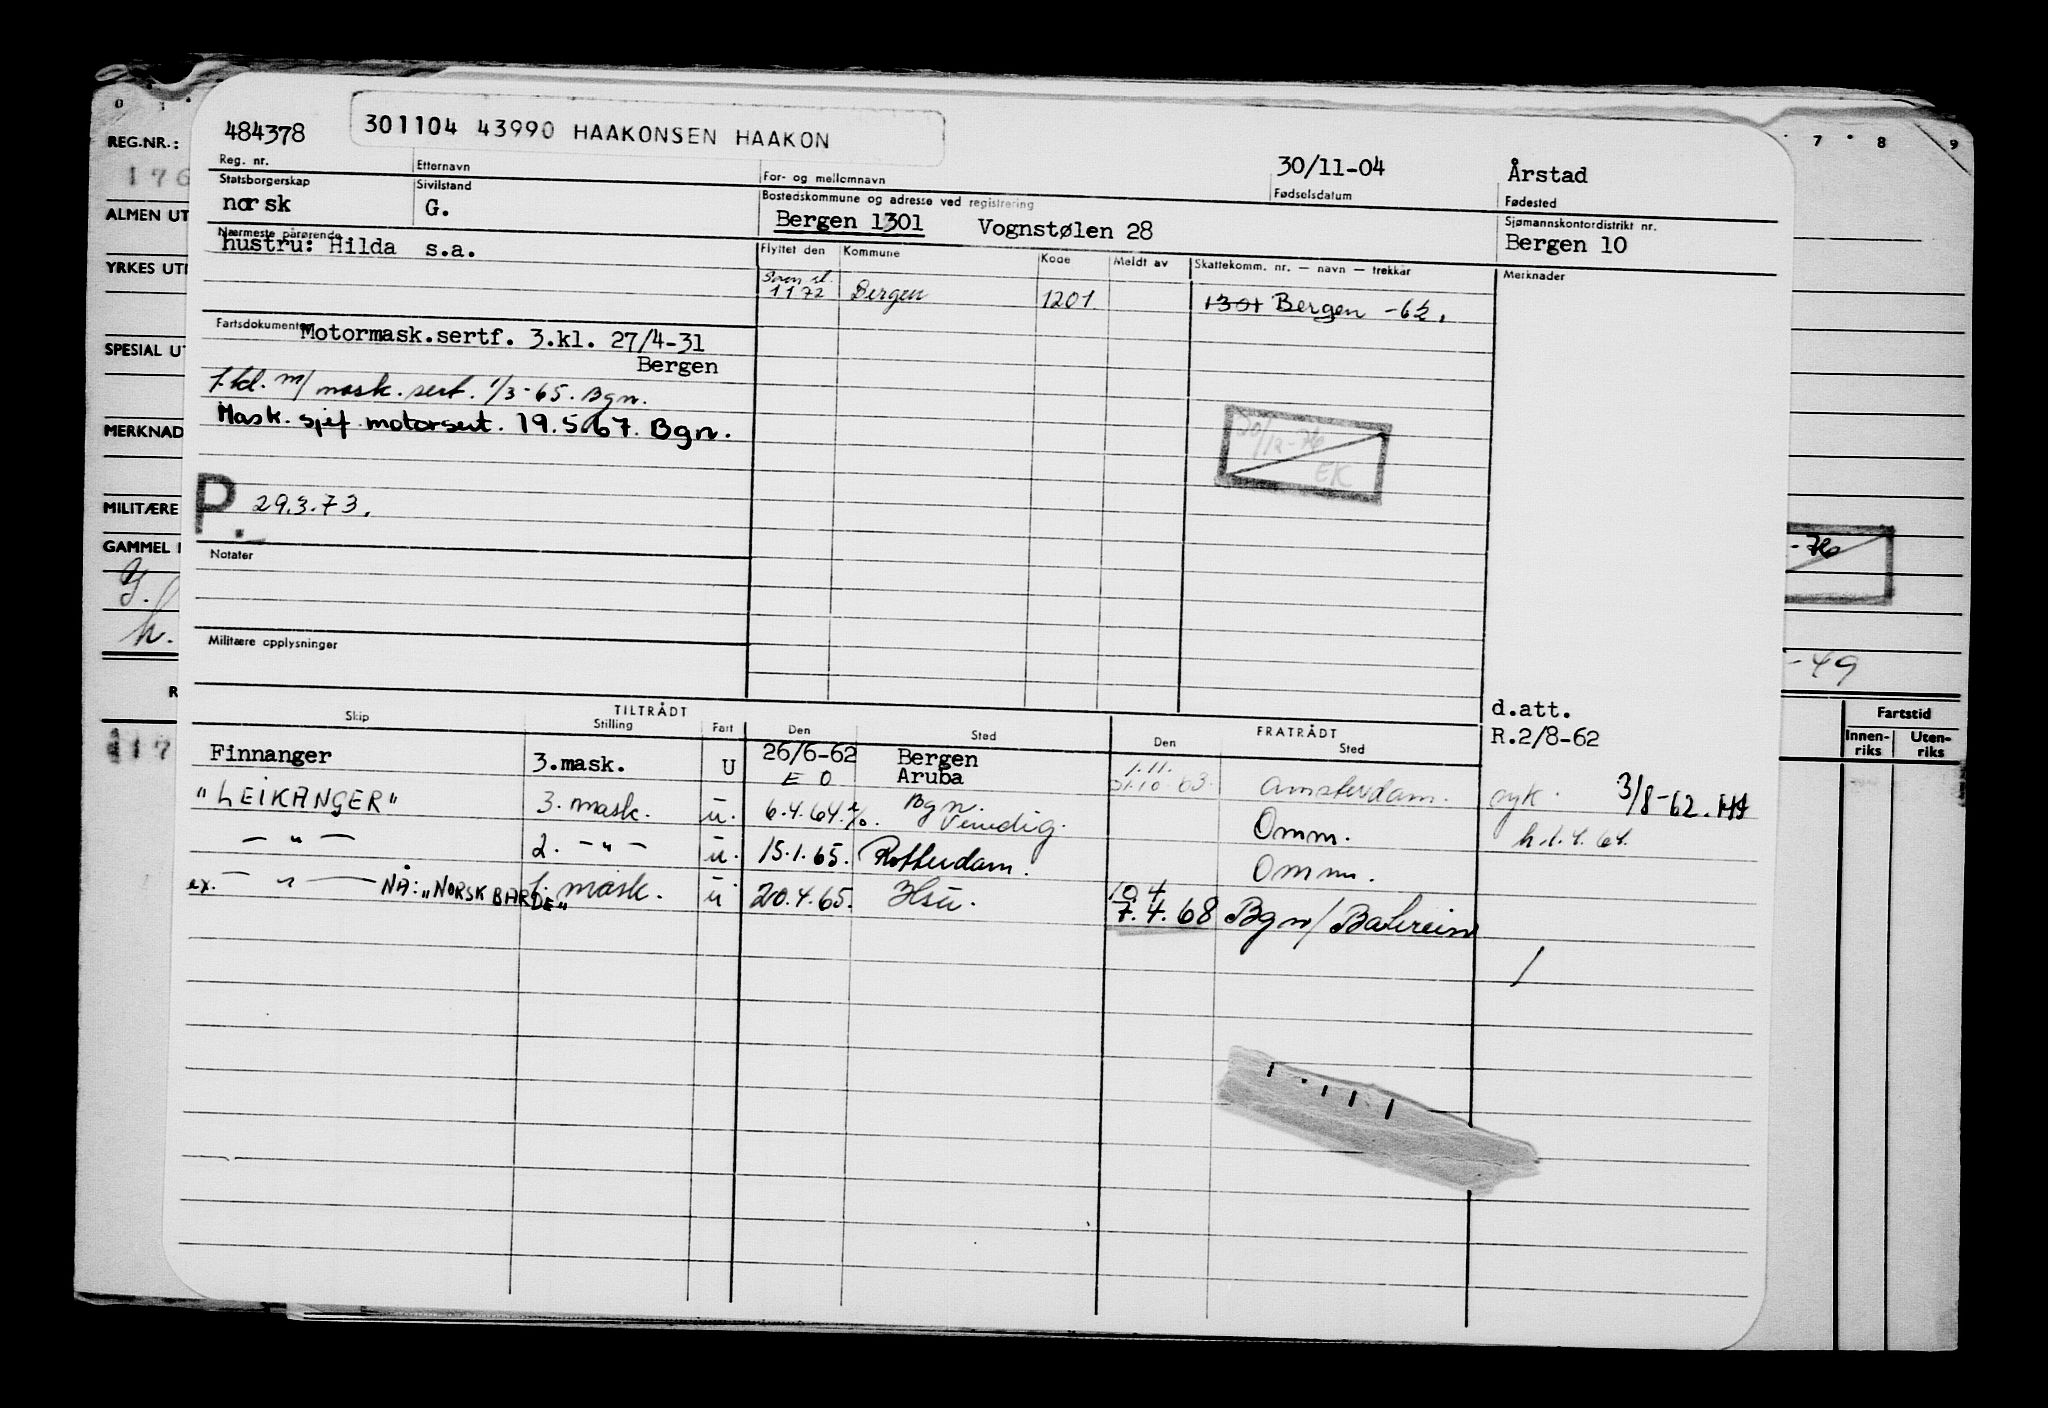 REG.NR.:
176
ALMEN UT
YRKES UT
SPESIAL UT
MERKNAD
MILITÆRE
GAMMEL
484378
301104 43990 HAAKONSEN HAAKON
30/11-04
Årstad
Reg. nr.
Etternavn
For- og mellomnavn
Fødselsdatum
Fødested
Statsborgerskap
Sivilstand
Bostedskommune og adresse ved registrering
Sjømannskontordistrikt nr.
norsk
G.
Bergen 1301 Vognstølen 28
Bergen 10
Nærmeste pårørende
hustru: Hilda s.a.
Flyttet den
Kommune
Kode
Meldt av
Skattekomm. nr. — navn — trekkår
Merknader
1 1 72 Bergen 1201
1301 Bergen -62.
Fartsdokumenter
Motormask.sertf. 3.kl. 27/4-31
Bergen
1.kl. m/ mask. sert. 1/3-65. Bgn.
Mask. sjef motorsert. 19.5.67. Bgn.
30/12-76
EK
P. 29.3.73.
Notater
Militære opplysninger
- 76
-49
TILTRÅDT
FRATRÅDT
Skip
Stilling
Fart
Den
Sted
Den
Sted
d.att.
R.2/8-62
Fartstid
Innen-riks
Uten-riks
Finnanger 3.mask. U 26/6-62 Bergen
E O Aruba 1.11.
31.10.63. Amsterdam. syk. 3/8-62. HH
"LEIKANGER" 3. mask. u. 6.4.64 Bgn.
Venedig. Omm. h.1.4.64.
— " — 2. — " — u. 15.1.65. Rotterdam. Omm.
ex. — " — NÅ: "NORSK BARDE" 1. mask. u 20.4.65. Hsu. 10 4
7.4.68 Bgn/